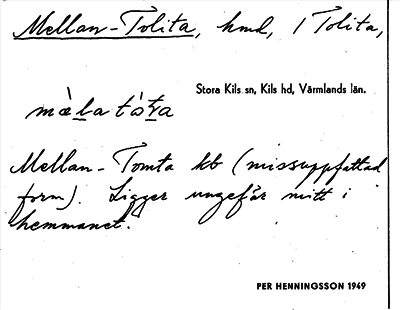 Mellan-Tolita, hmd, 1 Tolita,
Stora Kils sn, Kils hd, Värmlands län.
màla tòta
Mellan-Tomta kb (missuppfattad
form). Ligger ungefär mitt i
hemmanet.
PER HENNINGSSON 1949